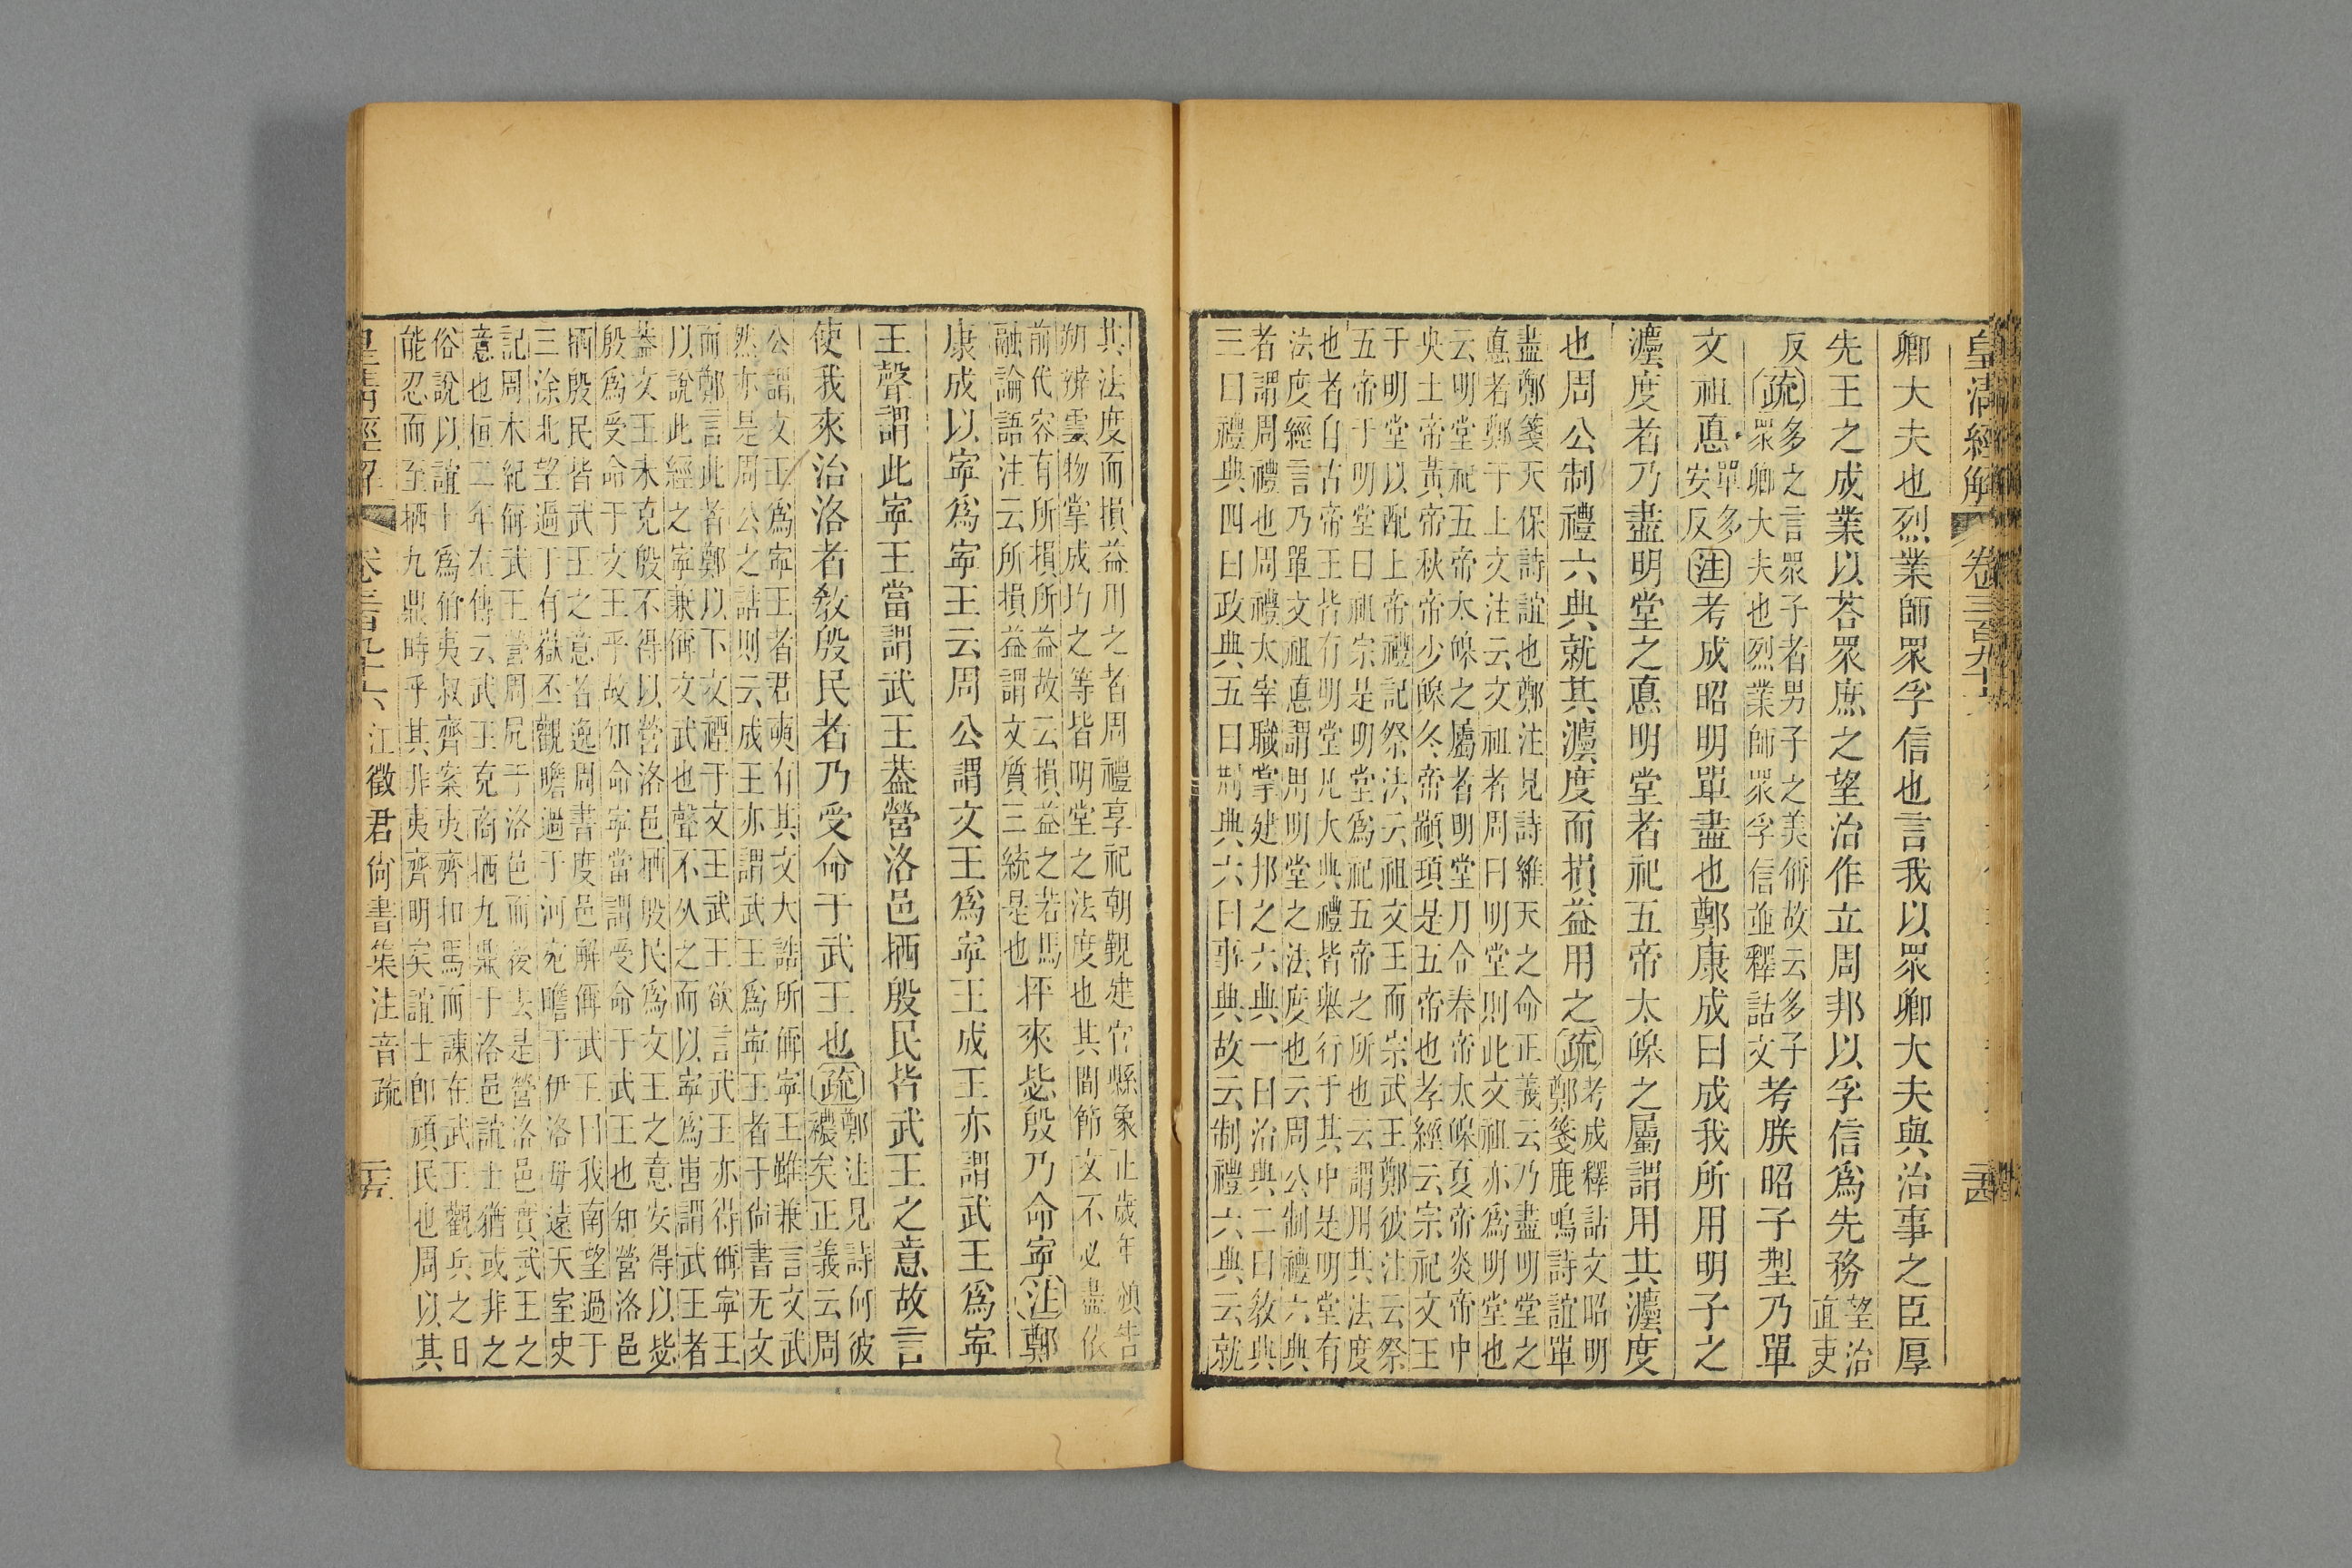 皇清經解 卷三百九十
卿大夫也烈業師眾孚信也言我以眾卿大夫與治事之臣厚
先王之成業以荅眾庶之望治作立周邦以孚信為先務望治直吏
反㽬多之言眾子者男子之美偁故云多子眾卿大夫也烈業師眾孚信並釋詁文考朕昭子㓝乃單
文祖悳單多安反注考成昭明單盡也鄭康成曰成我所用明子之
灋度者乃盡明堂之悳明堂者祀五帝太皞之屬謂用其灋度
也周公制禮六典就其灋度而損益用之疏考成釋詁文昭明鄭箋鹿鳴詩誼單
盡鄭箋天保詩誼也鄭注見詩維天之命正義云乃盡明堂之
悳者鄭于上文注云文祖者周曰明堂則此文祖亦為明堂也
云明堂祀五帝太皞之屬者明堂月令春帝太皞夏帝炎帝中
央土帝黃帝秋帝少皞冬帝顓頊是五帝也孝經云宗祀文王
于明堂以配上帝禮記祭法云祖文王而宗武王鄭彼注云祭
五帝于明堂曰祖宗是明堂為祀五帝之所也云謂用其法度
也者自古帝王皆有明堂凡大典禮皆舉行于其中是明堂有
法度經言乃單文祖悳謂用明堂之法度也云周公制禮六典
者謂周禮也周禮太宰職掌建邦之六典一曰治典二曰敎典
三曰禮典四曰政典五曰刑典六曰事典故云制禮六典云就
其法度而損益用之者周禮享祀朝覲建官縣象正歲年頒告
朔辨雲物掌成均之等皆明堂之法度也其閒節文不必盡依
前代容有所損所益故云損益之若馬融論語注云所損益謂文質三統是也抨來毖殷乃命寍注鄭
康成以寍為寍王云周公謂文王為寍王成王亦謂武王為寍
王聲謂此寍王當謂武王葢營洛邑栖殷民皆武王之意故言
使我來治洛者敎殷民者乃受命于武王也疏鄭注見詩何彼襛矣正義云周
公謂文王為寍王者君奭有其文大誥所偁寍王雖兼言文武
然亦是周公之詁則云成王亦謂武王為寍王者于尙書无文
而鄭言此者鄭以下文禋于文王武王欲言武王亦得偁寍王
以說此經之寍兼偁文武也聲不从之而以寍為耑謂武王者
葢文王未克殷不得以營洛邑栖殷民為文王之意安得以毖
殷為受命于文王乎故知命寍當謂受命于武王也知營洛邑
栖殷民皆武王之意者逸周書度邑解偁武王曰我南望過于
三涂北望過于有嶽丕觀瞻過于河宛瞻于伊洛毋遠天室史
記周本紀偁武王營周凥于洛邑而後去是營洛邑實武王之
意也桓二年左傳云武王克商栖九鼎于洛邑誼士猶或非之
俗說以誼士為伯夷叔齊案夷齊扣馬而諫在武王觀兵之日
能忍而至栖九鼎時乎其非夷齊明矣誼士卽頑民也周以其
皇清經解 卷三百九十六 江徵君尙書集注音疏 二五